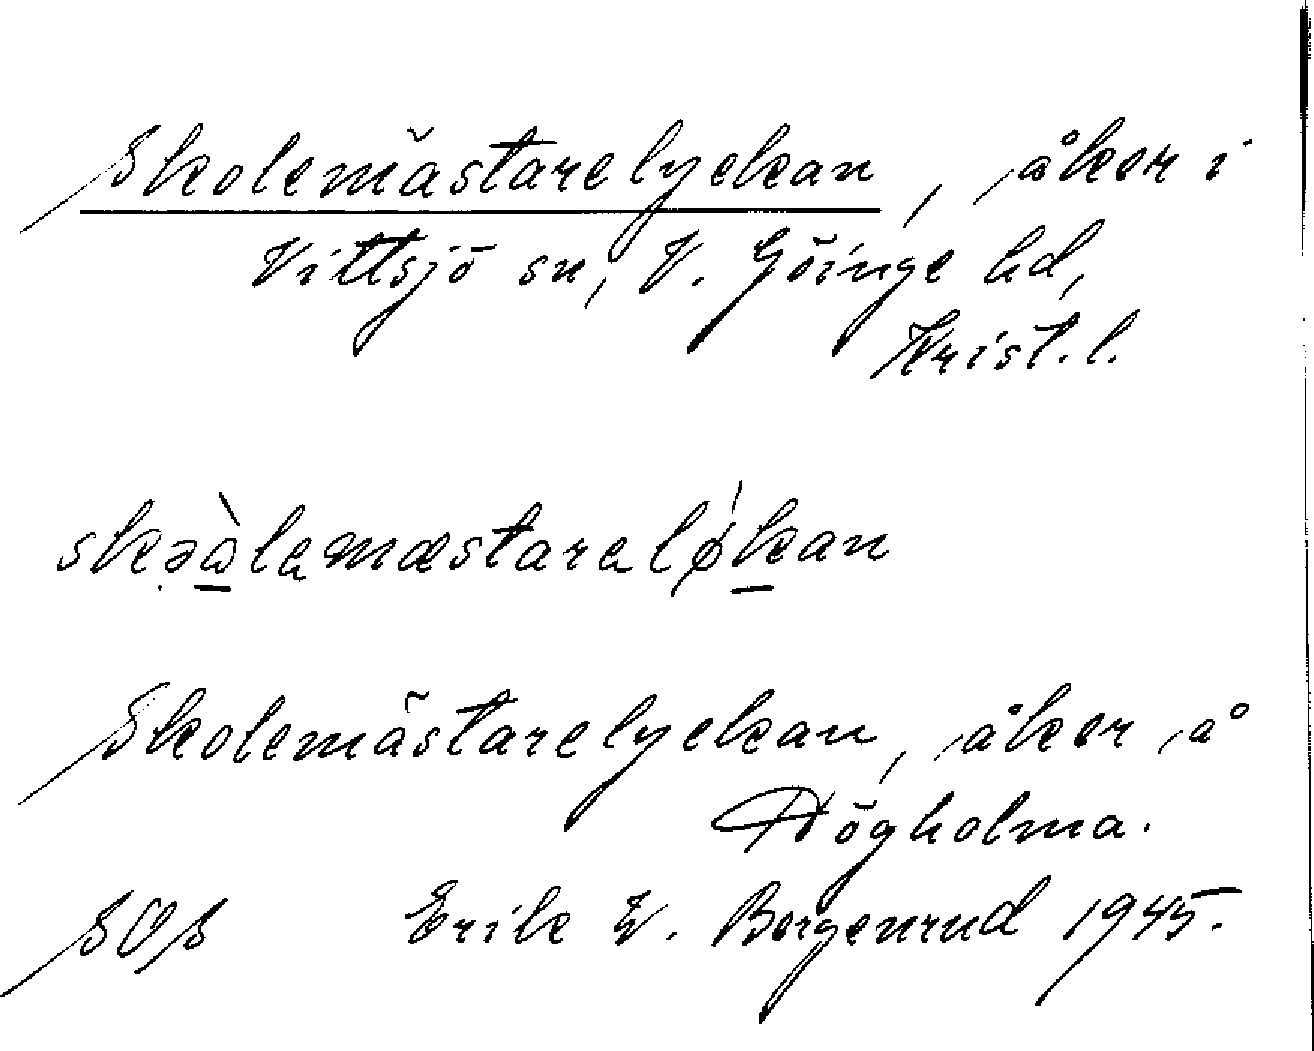 Skolemästarelyckan, åker i
Vittsjö sn, V. Göinge hd,
Krist. l.
skəɷ̀lamæstaraløḱan
Skolemästarelyckan, åker å
Högholma.
SOS Erik W. Borgenrud 1945.